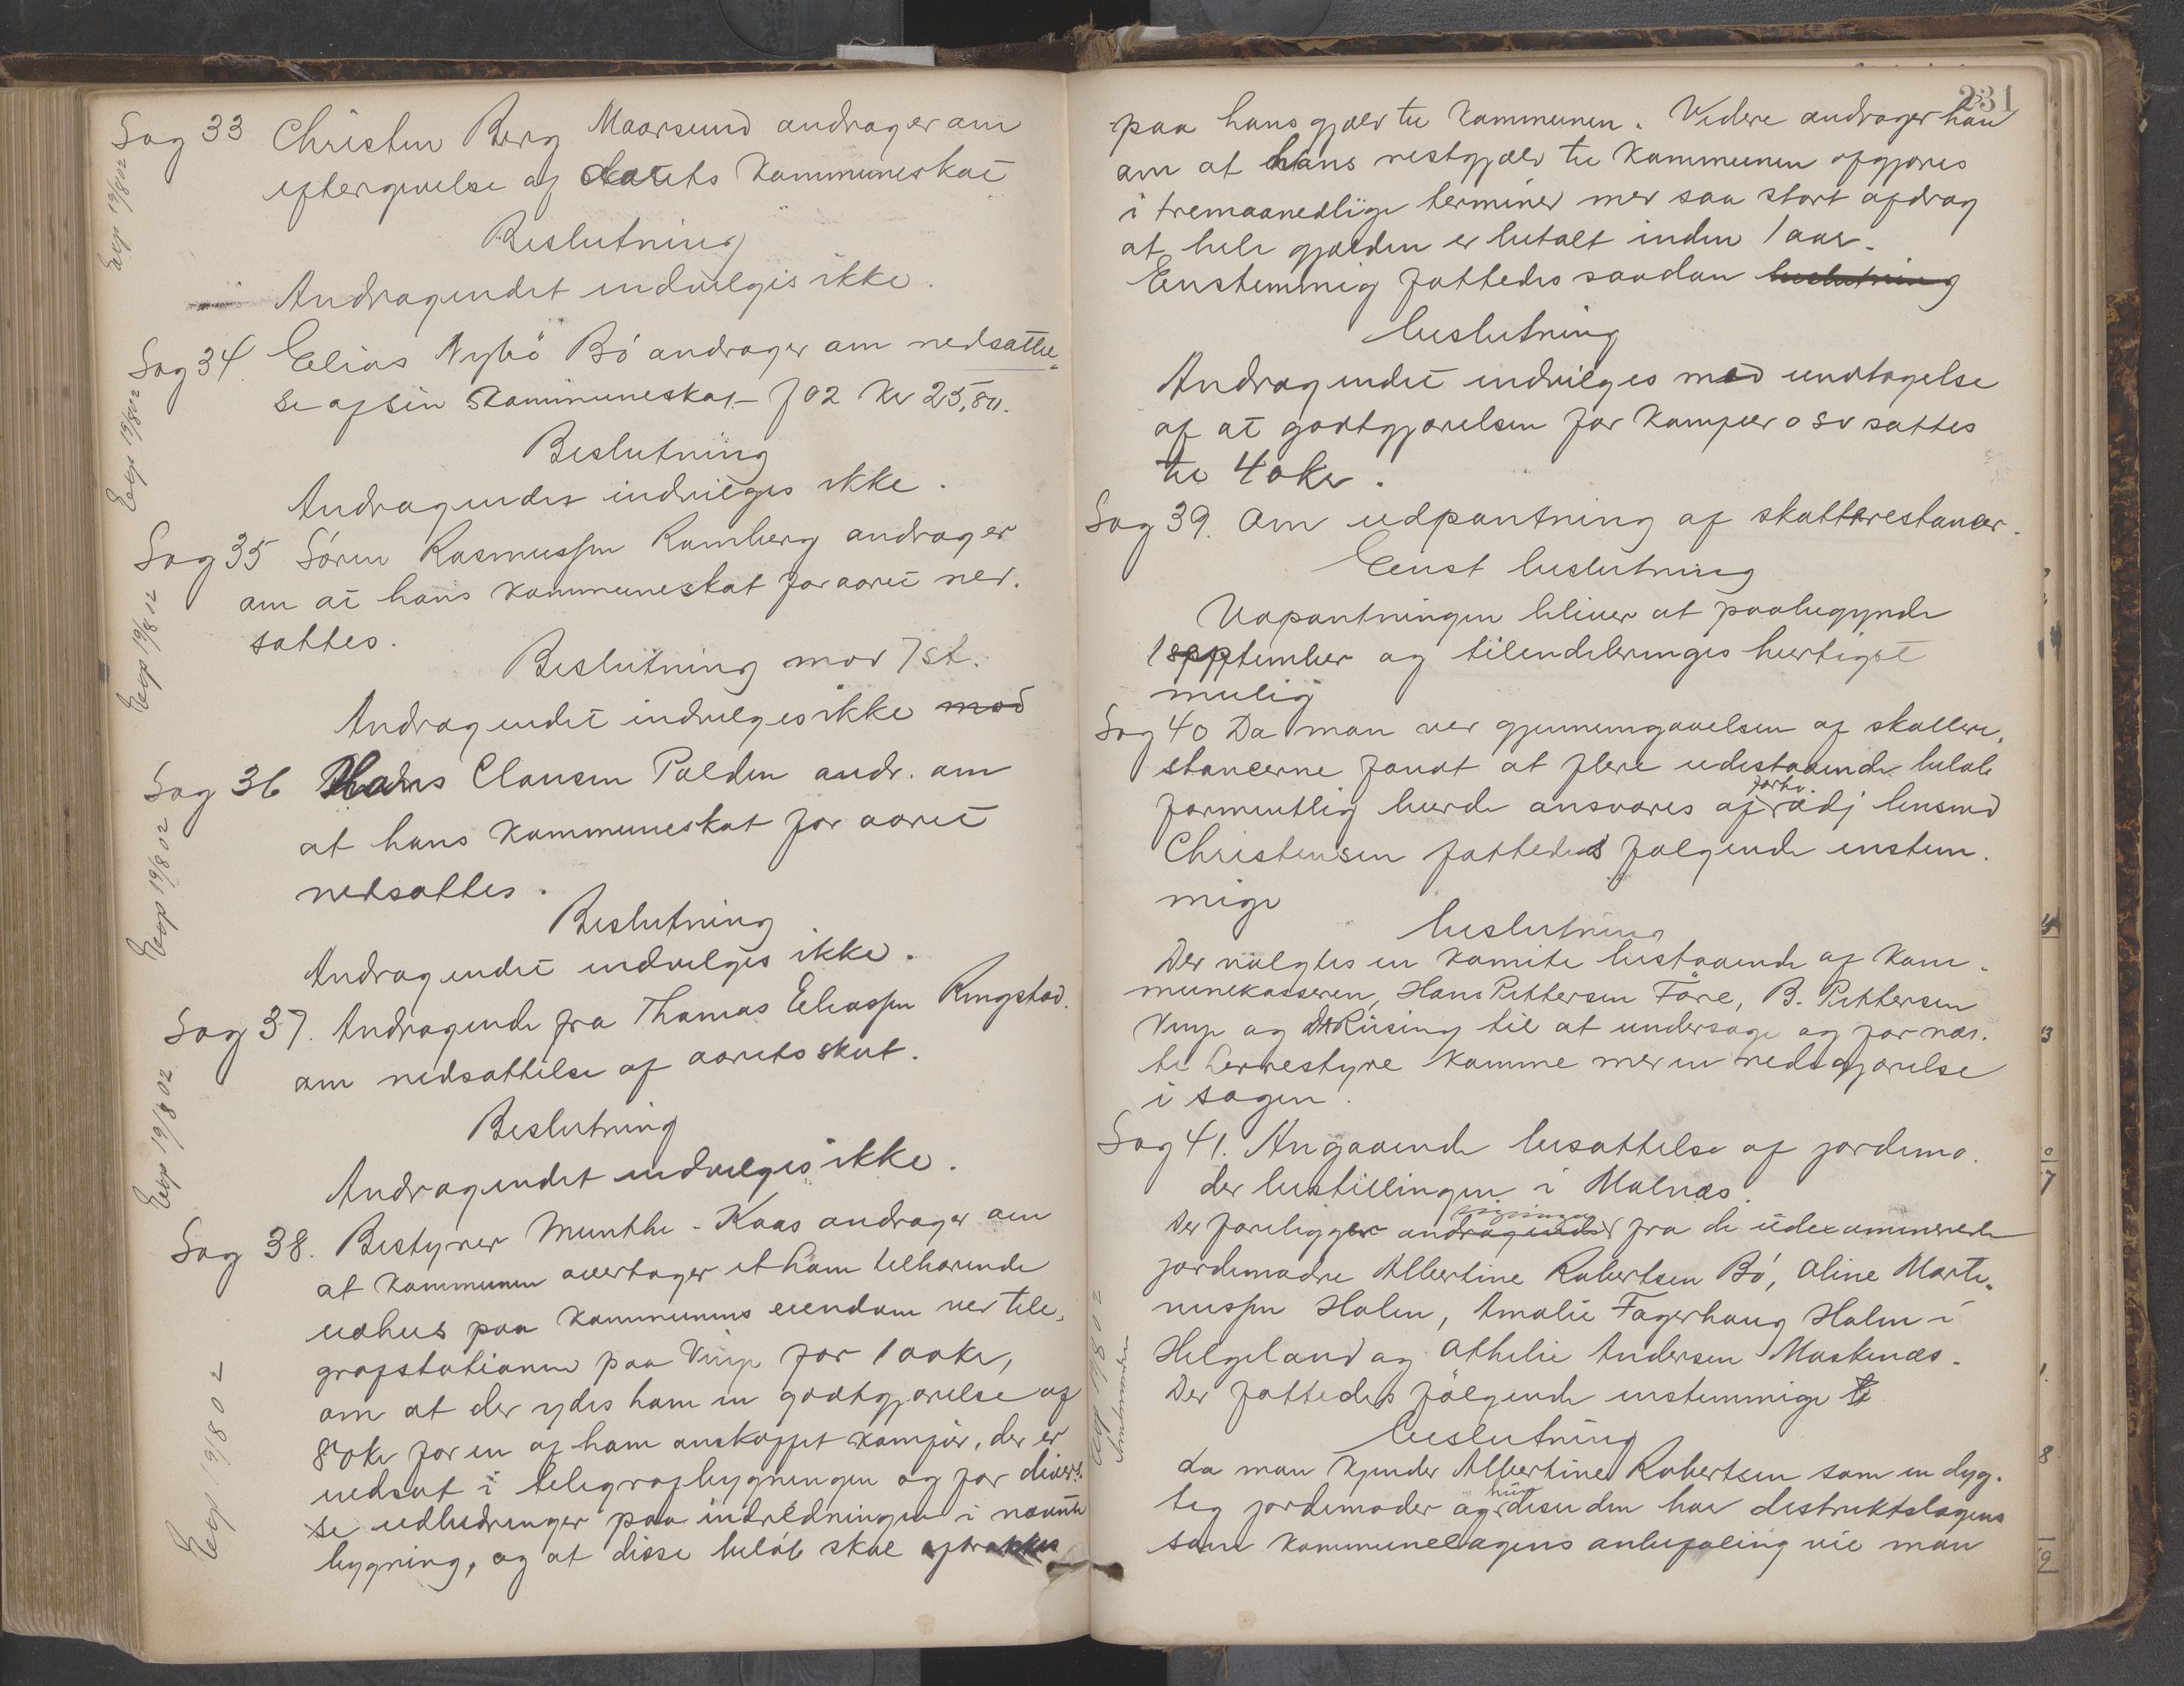 Sag 33 Christen Berg Maarsund andrager om
eftergivelse af aarets Kommuneskat
Exp 19/8 02
Beslutning
Andragendet indvilges ikke.
Sag 34. Elias Nybö Bö andrager om nedsættel-
se af sin Kommuneskat f 02 Kr 25,80.
Exp 19/8 02
Beslutning
Andragendet indvilges ikke.
Sag 35 Sören Rasmussen Ramberg andrager
om at hans Kommuneskat for aaret ned-
sættes.
Exp 19/8 02
Beslutning mod 7 st.
Andragendet indvilges ikke mod
Sag 36 Hans Clausen Polden andr. om
at hans Kommuneskat for aaret
nedsættes.
Exp 19/8 02
Beslutning
Andragendet indvilges ikke.
Sag 37. Andragende fra Thomas Eliassen Ringstad.
om nedsættelse af aarets skat.
Exp 19/8 02
Beslutning
Andragendet indvilges ikke.
Sag 38. Bestyrer Munthe-Kaas andrager om
at Kommunen overtager et ham tilhörende
udhus paa Kommunens eiendom ved tele-
grafstationen paa Vinje for 100 kr,
om at der ydes ham en godtgjörelse af
80 kr for en af ham anskaffet Komfür, der er
indsat i telegrafbygningen og for diver-
se udbedringer paa indredningen i nævnte
bygning, og at disse belöb skal
Exp 19/8 02
231
paa hans gjæld til Kommunen. Videre andrager han
om at hans restgjæld til Kommunen opgjøres
i tremaanedlige terminer med saa stort afdrag
at hele gjælden er betalt inden 1 aar.
Enstemmig fattedes saadan beslutning
beslutning
Andragendet indvilges med undtagelse
af at godtgjørelsen for Komfür osv sættes
til 40 kr.
Sag 39. Om udpantning af skatterestancer.
Eenst beslutning
Udpantningen bliver at paabegynde
1 september og tilendebringes hurtigst
mulig
Sag 40 Da man ved gjennemgaaelsen af skattere-
stancerne fandt at flere udestaaende beløb
formentlig burde ansvares af forhv. lensmd
Christensen fattedes følgende enstem-
mige
beslutning
Der valgtes en Komite bestaaende af Kom-
munekasseren, Hans Pettersen Före, B. Pettersen
Vinje og Rüsing til at undersøge og for næs-
te herredstyre komme med en redegjørelse
i sagen.
Sag 41. Angaaende besættelse af jordemo-
derbestillingen i Malnæs.
Der foreligger andragender fra de udexaminerede
jordemødre Albertine Robertsen Bö, Oline Marti-
nussen Holm, Amalie Fagerhaug Holm i
Helgeland og Othelie Andersen Moskenæs.
Der fattedes følgende enstemmige
beslutning
da man kjender Albertine Robertsen som en dyg-
tig jordemoder og hun desuden har distriktslægens
som kommunelægens anbefaling vil man